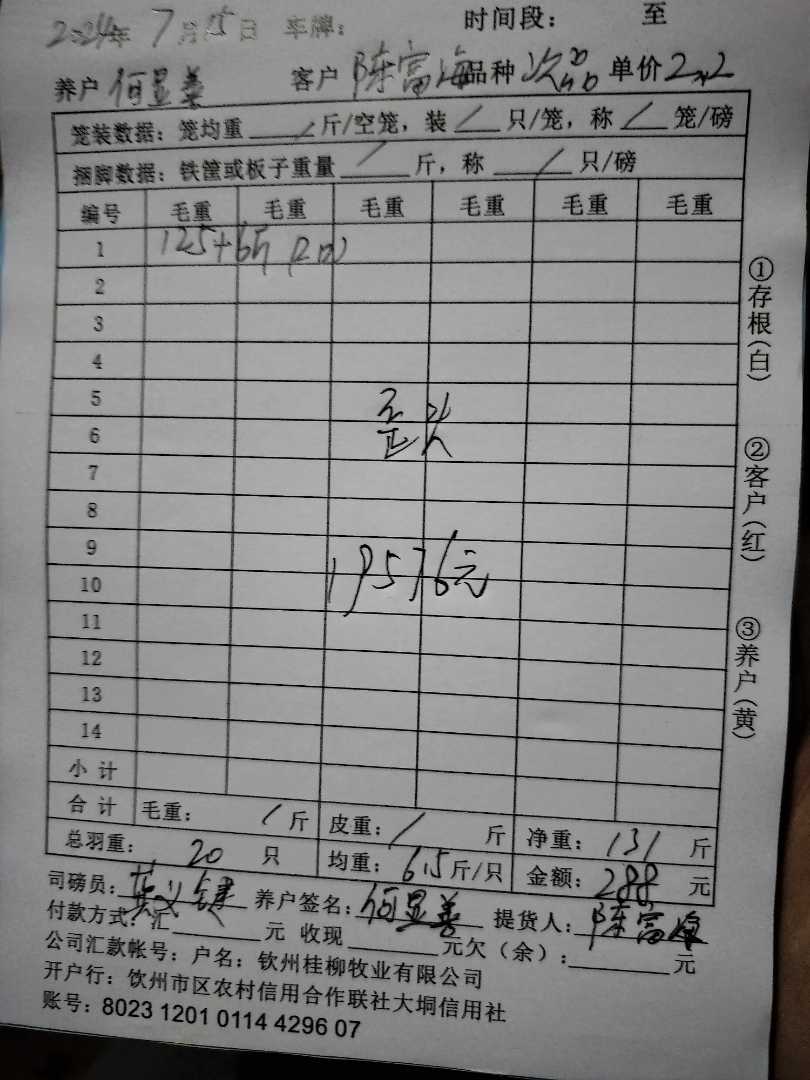 2024年 7月15日 车牌: 时间段: 至
养户 何显善 客户 陈富海 品种 次品 单价 2.2
笼装数据: 笼均重 / 斤/空笼, 装 / 只/笼, 称 / 笼/磅
捆脚数据: 铁筐或板子重量 / 斤, 称 / 只/磅
编号 毛重 毛重 毛重 毛重 毛重 毛重
1 125+6斤
2
3
4
5
歪头
6
7
8
9
19576元
10
11
12
13
14
小计
合计 毛重: / 斤 皮重: / 斤 净重: 131 斤
总羽重: 20 只 均重: 6.5 斤/只 金额: 288 元
司磅员: 养户签名: 何显善 提货人: 陈富海
付款方式: 汇 元 收现 元欠(余): 元
公司汇款帐号: 户名: 钦州桂柳牧业有限公司
开户行: 钦州市区农村信用合作联社大垌信用社
账号: 8023 1201 0114 4296 07
①存根(白)
②客户(红)
③养户(黄)